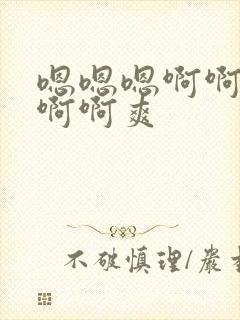 嗯嗯嗯啊啊
啊啊爽
不破慎理/嚴